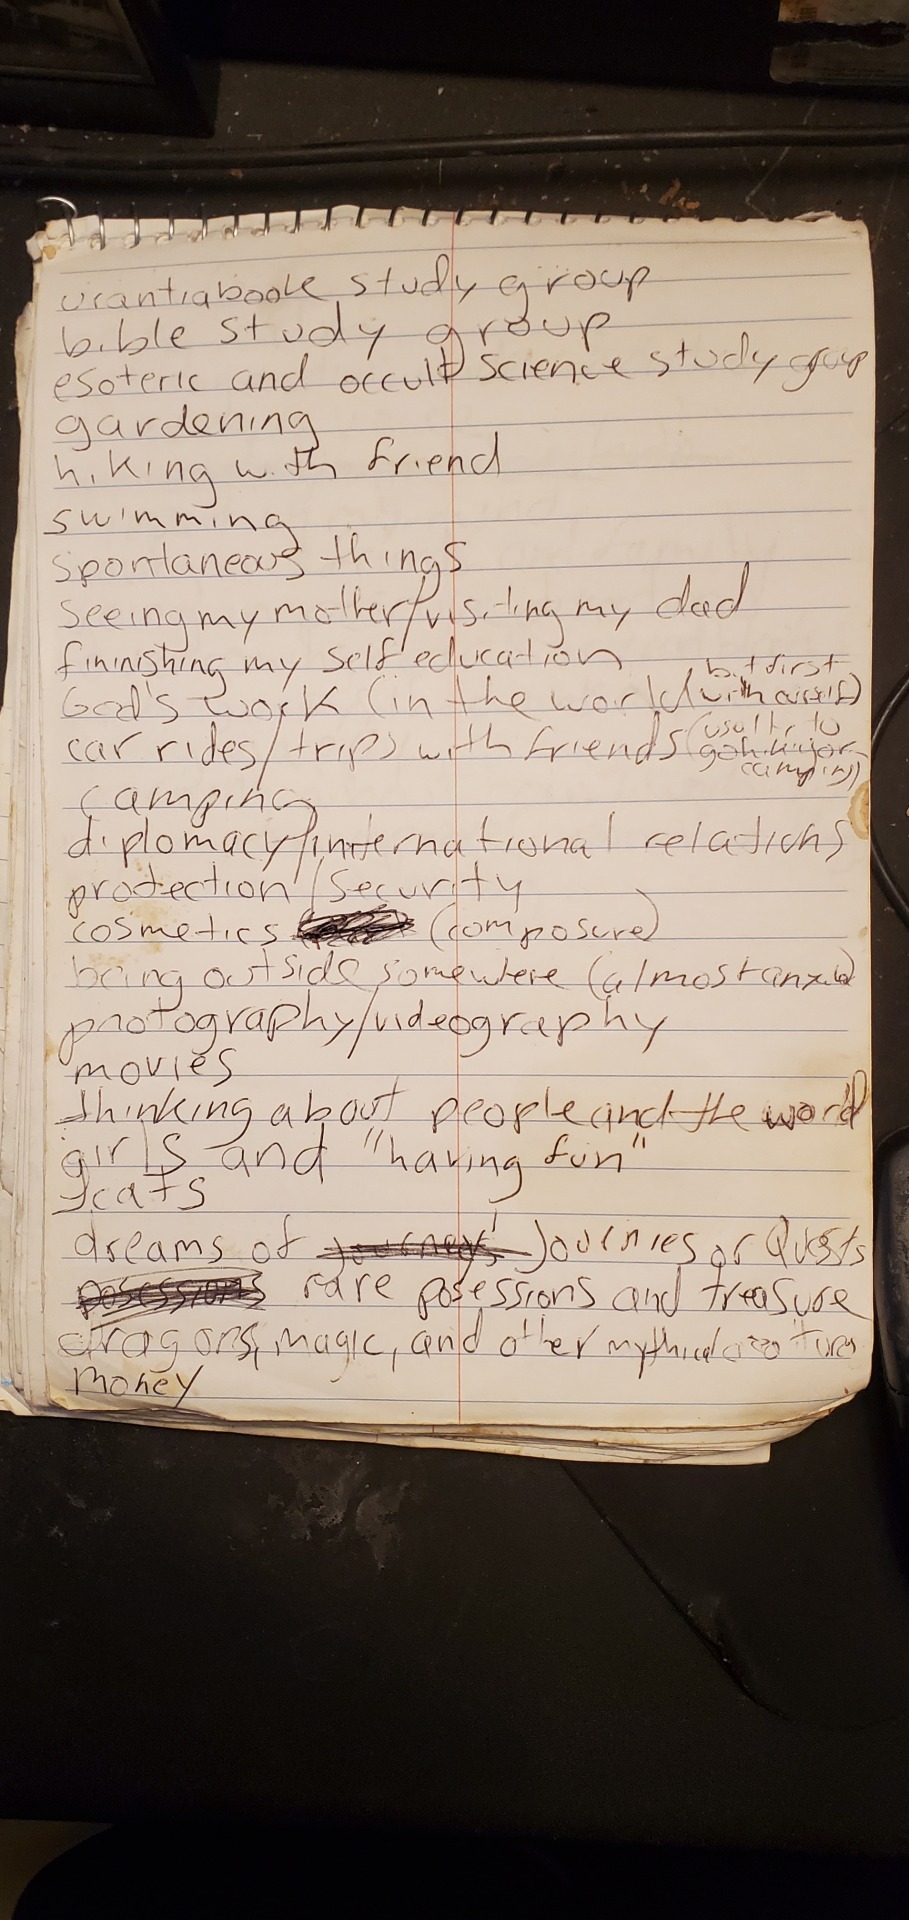 urantiabook study group
bible study group
esoteric and occult science study group
gardening
hiking with friend
swimming
spontaneous things
seeing my mother/visiting my dad
fininishing my self education
but first
God's work (in the world with
car rides/trips with friends (
camping)
camping
diplomacy/international relations
protection/security
cosmetics (composure)
being outside somewhere (almost
photography/videography
movies
thinking about people and the world
girls and "having fun"
cats
dreams of journeys' Journies or Quests
posessions rare posessions and treasure
dragons, magic, and other mythical
money